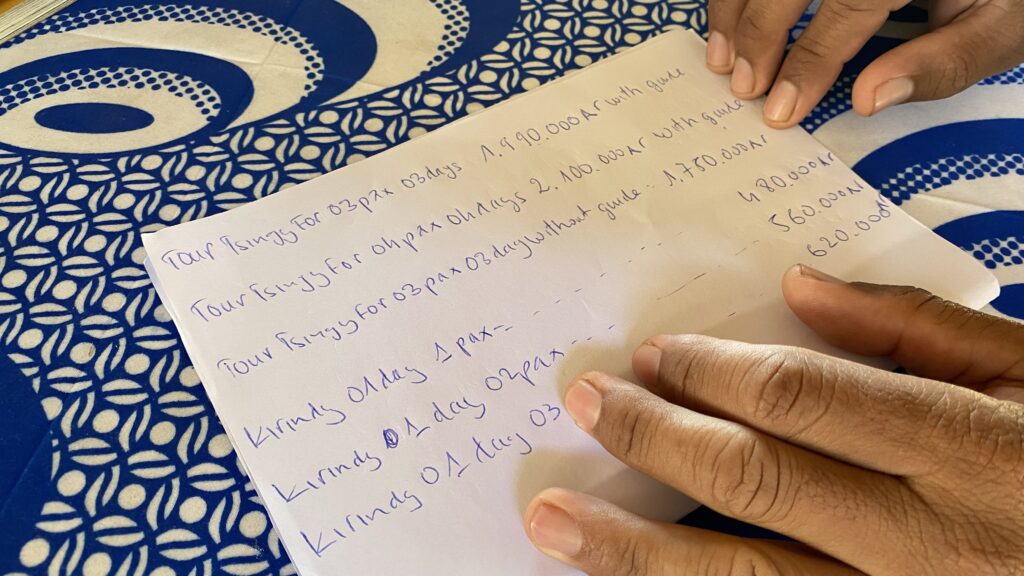 Tour Tsingy For 03pax 03days 1.990.000Ar with guide
Tour Tsingy For 04pax 04days 2.100.000Ar with guide
Tour Tsingy For 03pax 03day without guide: 1.750.000Ar
Kirindy 01day 1pax = - - - - - 480.000Ar
Kirindy 01day 02pax - - - - - 560.000Ar
Kirindy 01day 03 - 620.000Ar